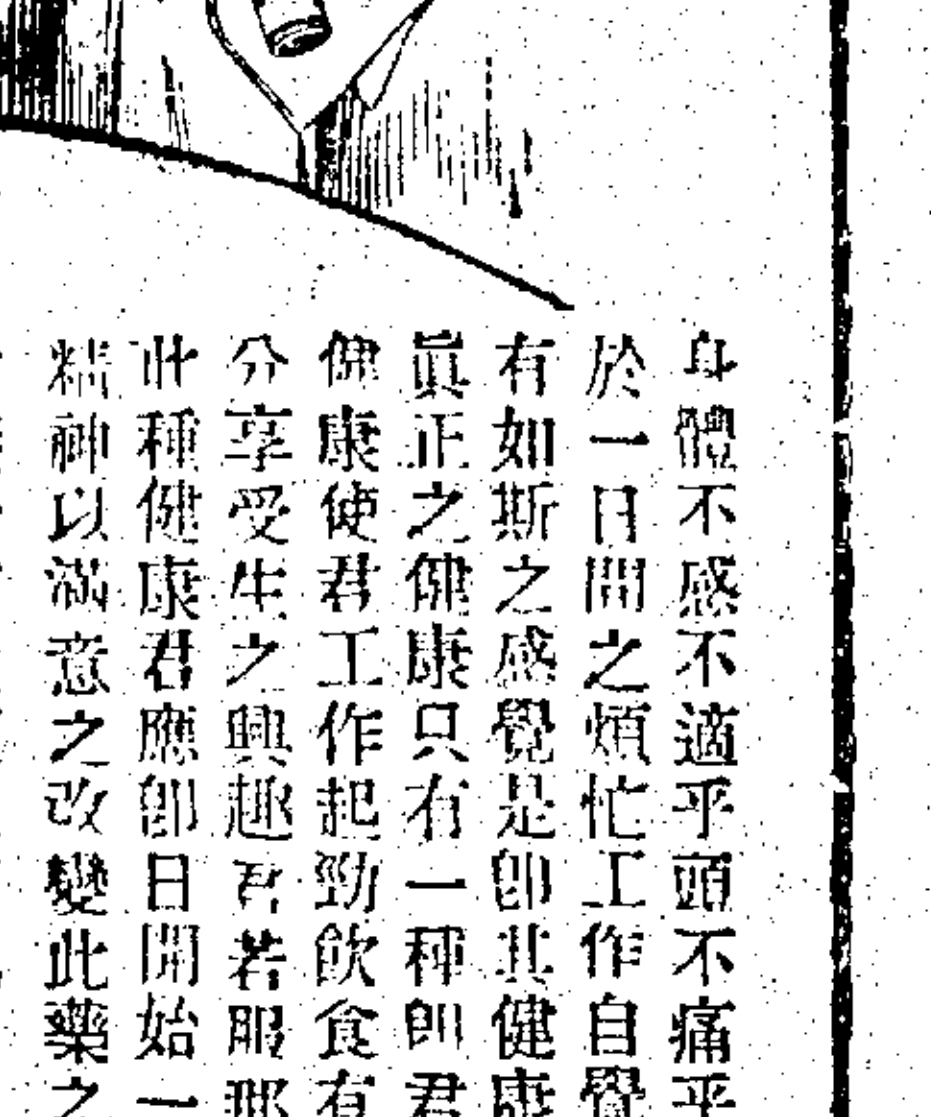 身體不感不適乎頭不痛乎
於一日間之煩忙工作自覺
有如斯之感覺是卽其健康
眞正之健康只有一種卽君
健康使君工作起勁飲食有
分享受生之興趣君若服那
此種健康君應卽日開始一
精神以滿意之改變此藥之